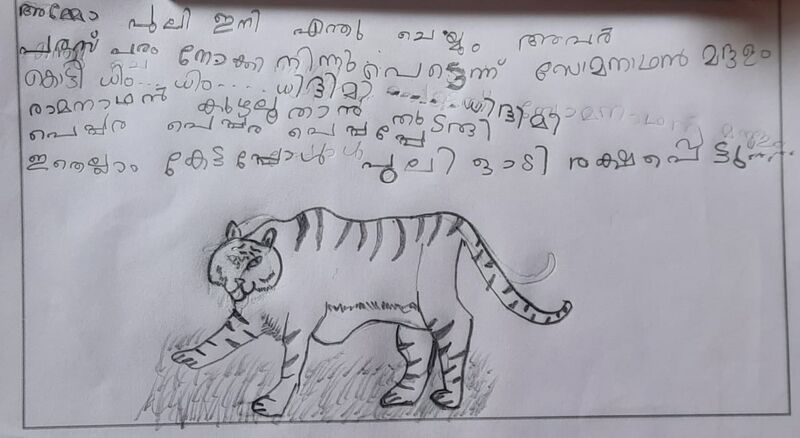 അമ്മോ പുലി ഇനി എന്തു ചെയ്യും അവർ
പരസ്പരം നോക്കി നിന്നു പെട്ടെന്ന് സോമനാഥൻ മദ്ദളം
കൊട്ടി ധിം... ധിം... ധിദ്ദിമി ...... ധിദ്ദിമി
രാമനാഥൻ കുഴലൂതാൻ തുടങ്ങി
പെപ്പര പെപ്പര പെപ്പപ്പേ
ഇതെല്ലാം കേട്ടപ്പോൾ പുലി ഓടി രക്ഷപെട്ടു.....